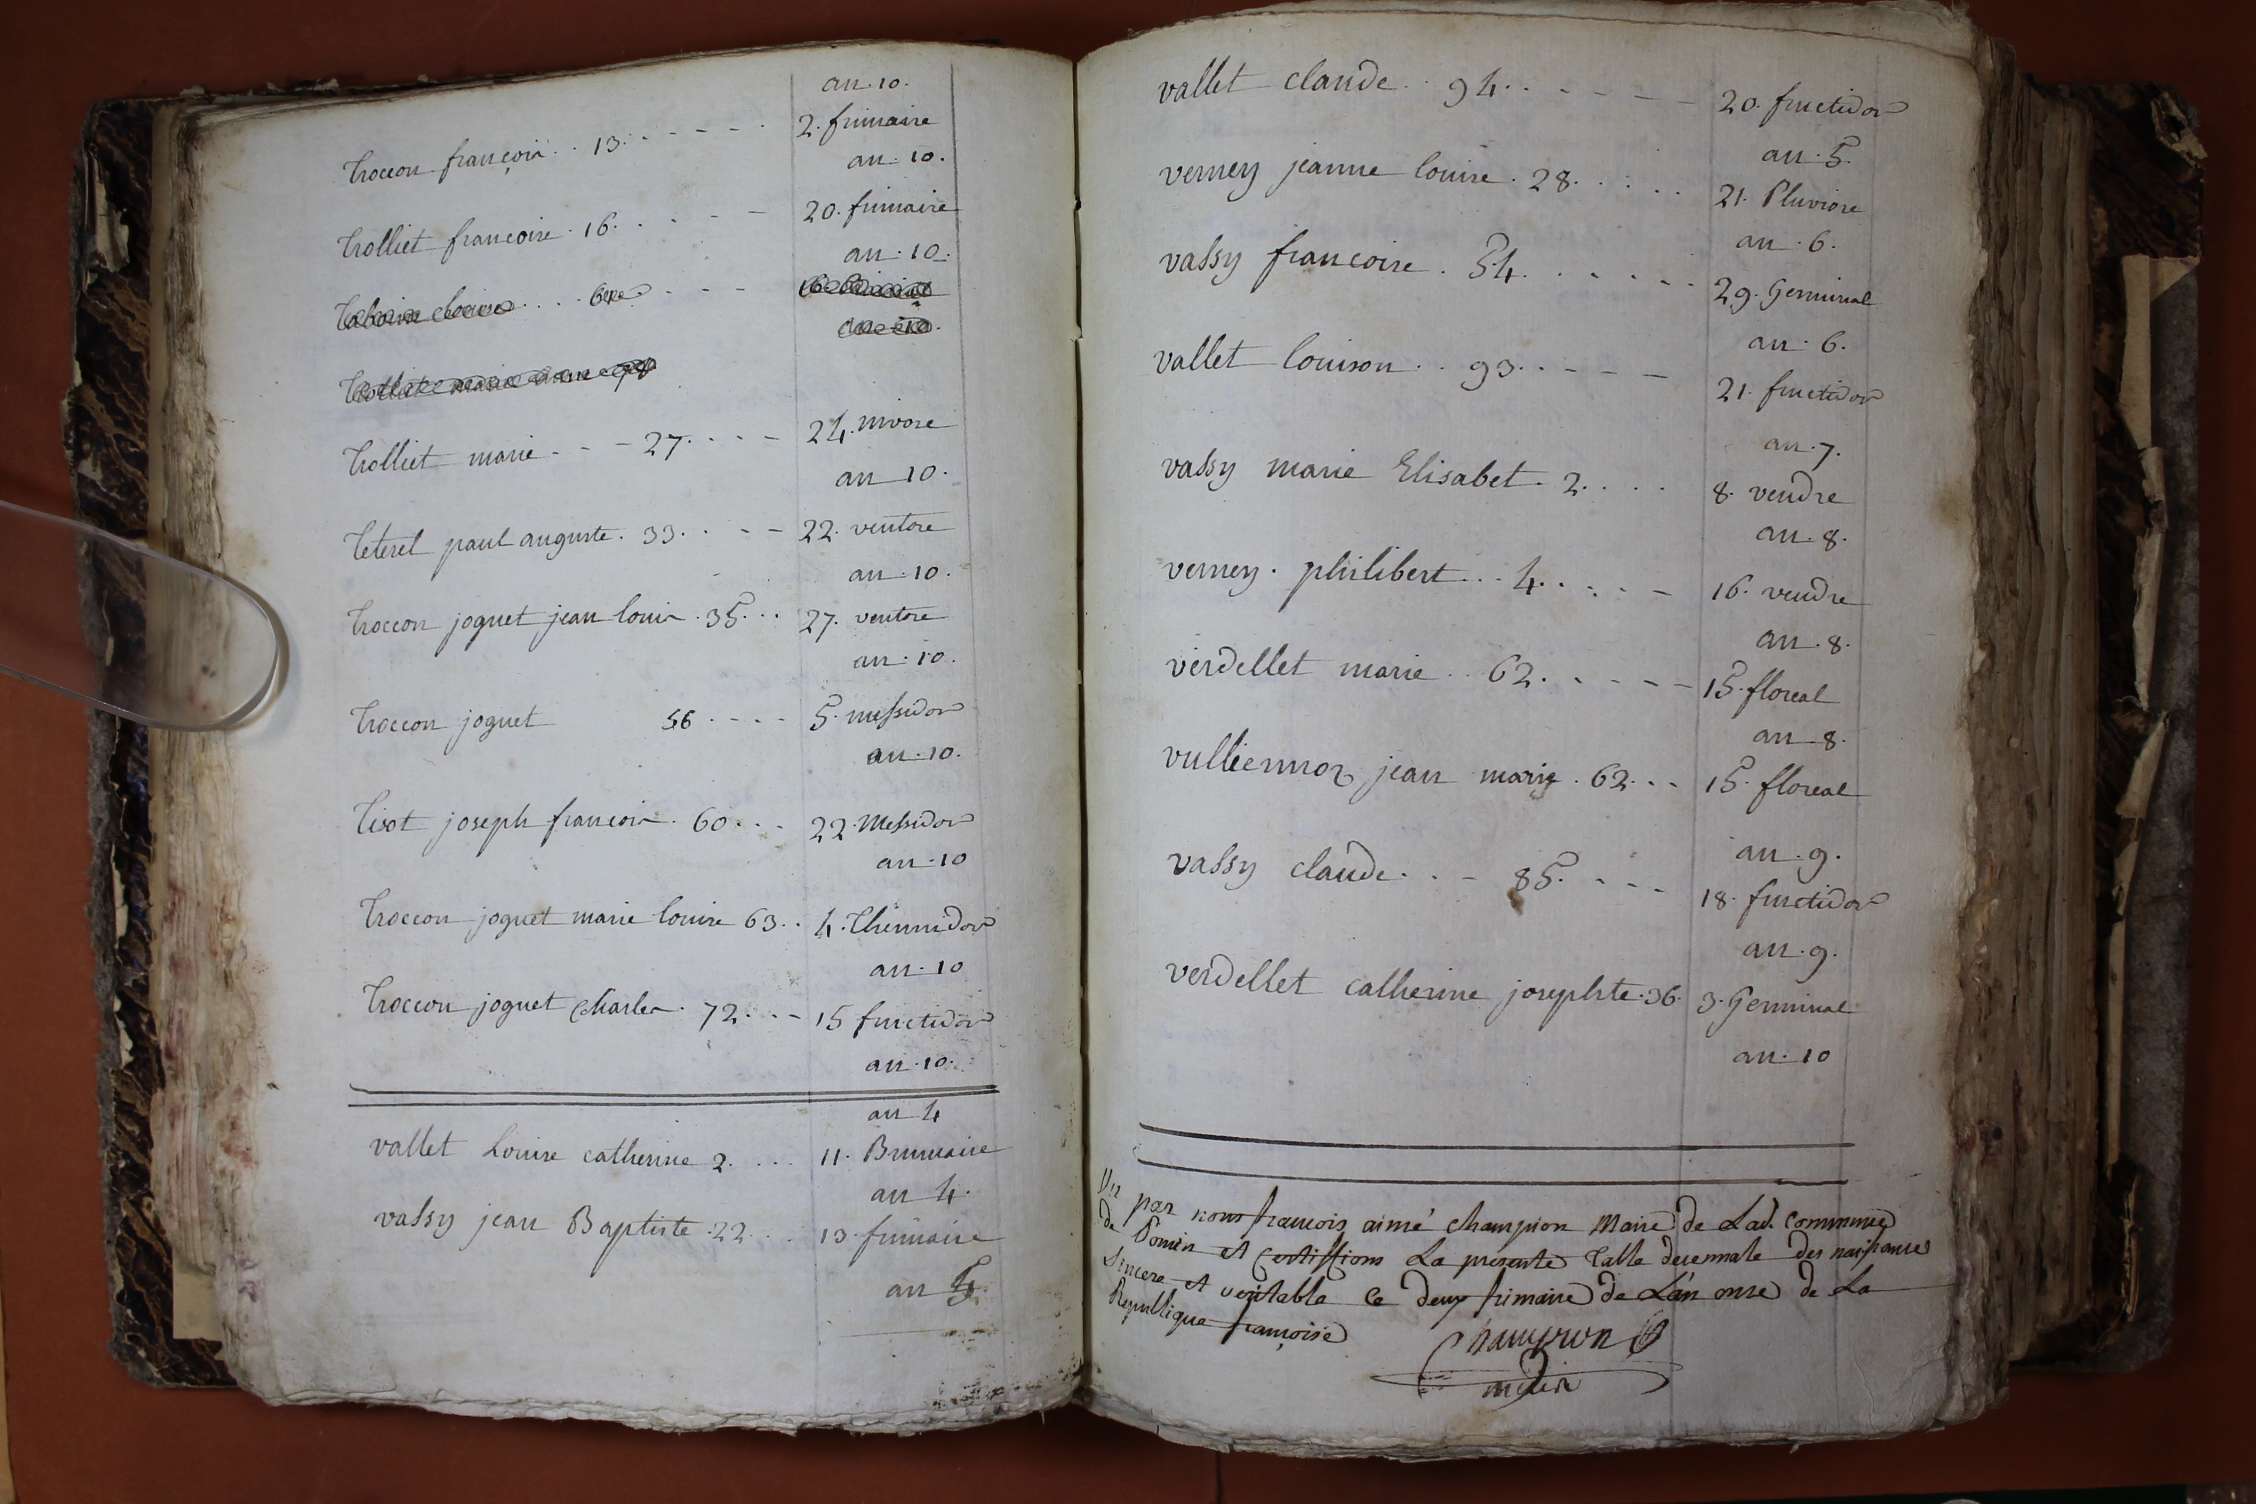 an 10.
troccon françois . . 13. - - - - 2. frimaire
an . 10.
trolliet francoise . 16. . - - - 20. frimaire
an . 10.
trolliet marie - - - 27. - - - 24. nivose
an 10.
teterel paul auguste . 33. - - - 22. ventose
an . 10.
troccon joguet jean louis . 35. . . 27. ventose
an . 10.
troccon joguet 56 . - - - 5. messidor
an . 10.
tisot joseph francois . 60 . . . 22. Messidor
an . 10
troccon joguet marie louise 63 . . 4. Thermidor
an . 10
troccon joguet Charles . 72 . . - 15 fructidor
an . 10.
an 4
vallet Louise catherine 2. . . . 11. Brumaire
an 4.
vassy jean Baptiste . 22 . . . 13. frimaire
an 5.
vallet claude . . 94. . - - - - 20. fructidor
an . 5.
verney jeanne louise . 28. . . . . 21. Pluviose
an . 6.
vassy francoise . 54. . . . . . 29. Germinal
an . 6.
vallet louison . . 93. . - - - 21. fructidor
an . 7.
vassy marie Elisabet . 2. . . . 8. vendre
an . 8.
verney . philibert . . . 4. . . - - 16. vendre
an . 8.
verdellet marie . . 62. - - - - 15. floreal
an 8.
vulliermoz jean marie . 62. . . 15. floreal
an . 9.
vassy claude . . - 85. - - - 18. fructidor
an . 9.
verdellet catherine josephte . 36. 3. Germinal
an . 10
Vu par nous francois aimé champion Maire de Lad. Commune
de et Certiffions La presente Table decennale des naissances
Sincere et veritable Ce deux frimaire de L'an onse de La
Republique françoise
Champion
maire